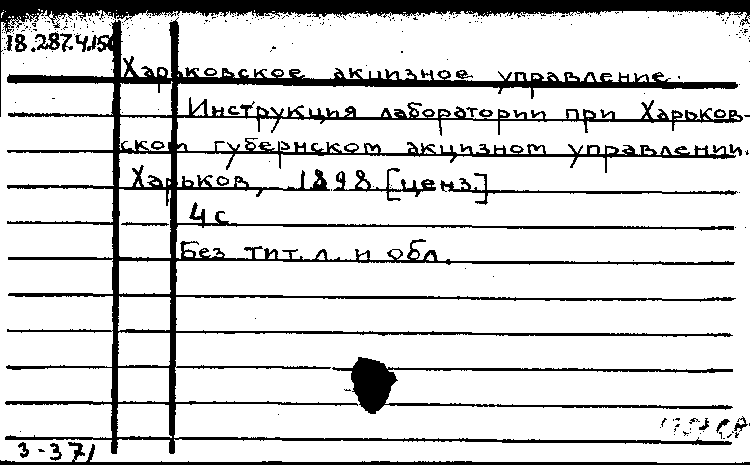 18.287.4.150
Харьковское акцизное управление.
Инструкция лаборатории при Харьков-
ском губернском акцизном управлении.
Харьков, 1898 [ценз.]
4 с
Без тит. л. и обл.
3-371